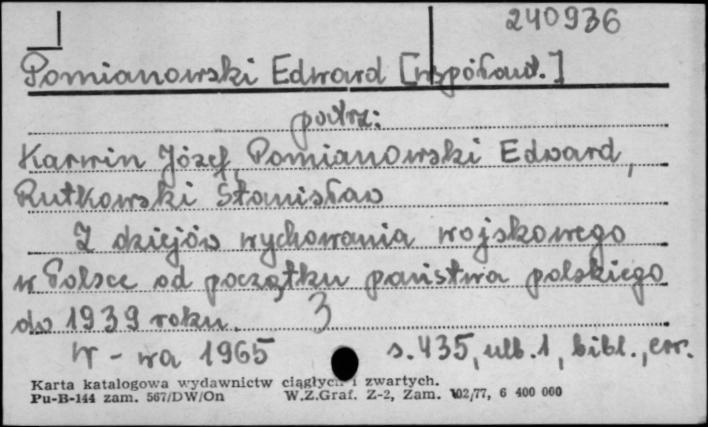 240936
Pomianowski Edward [współaut.]
patrz:
Karwin Józef, Pomianowski Edward,
Rutkowski Stanisław
Z dziejów wychowania wojskowego
w Polsce od początku państwa polskiego
do 1939 roku. 3
W-wa 1965 s. 435, ulb. 1, bibl., err.
Karta katalogowa wydawnictw ciągłych i zwartych.
Pu-B-144 zam. 567/DW/On W.Z.Graf. Z-2, Zam. 102/77, 6 400 000